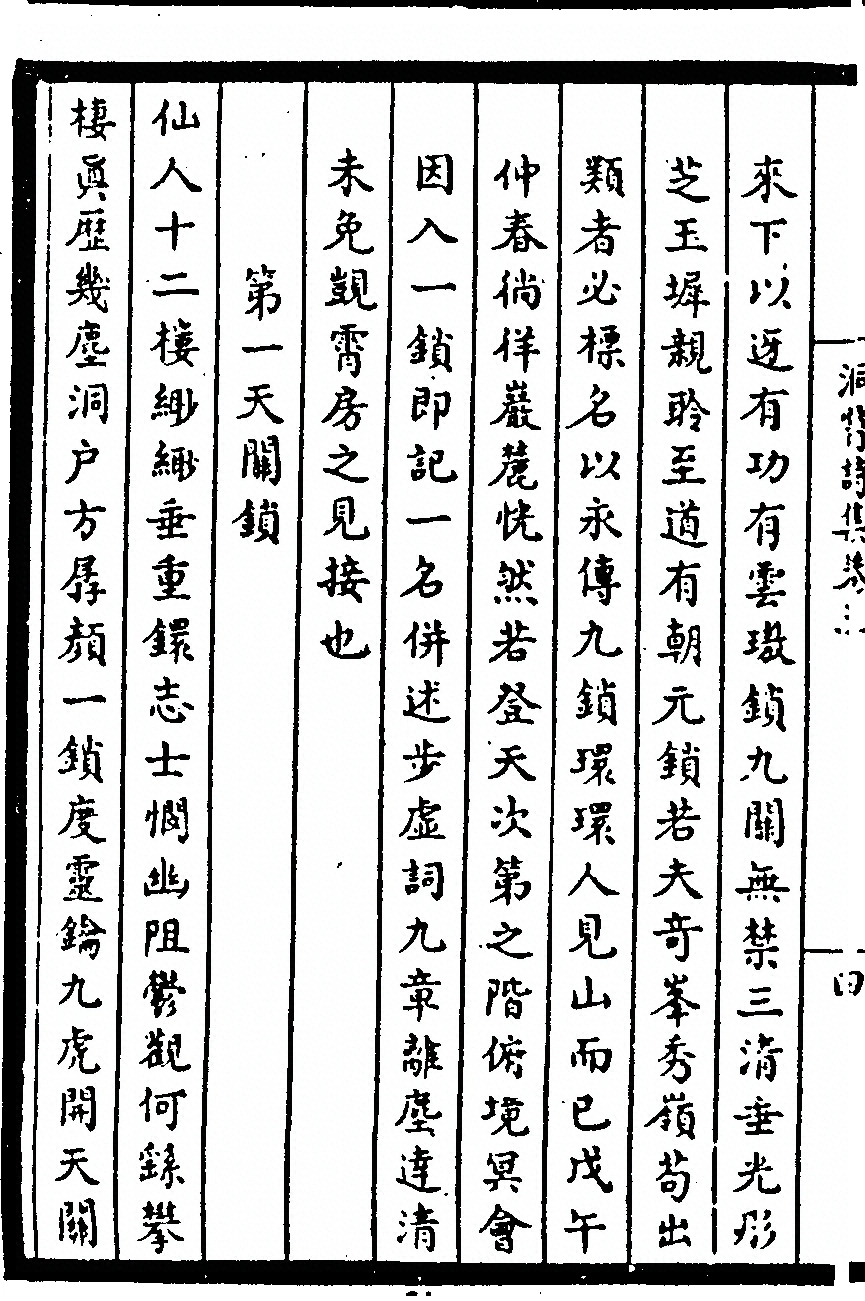 洞霄詩集卷三
四
來下以迓有功有雲璈鎖九關無禁三清垂光彤
芝玉墀親聆至道有朝元鎖若夫奇峯秀嶺茍出
類者必標名以永傳九鎖環環人見山而已戊午
仲春徜徉巖麓恍然若登天次第之階俯境冥會
因入一鎖即記一名併述步虛詞九章離塵達清
未免覬霄房之見接也
第一天關鎖
仙人十二樓緲緲垂重鐶志士憫幽阻鬱觀何繇攀
棲眞歷幾塵洞户方孱顏一鎖度靈鑰九虎開天關